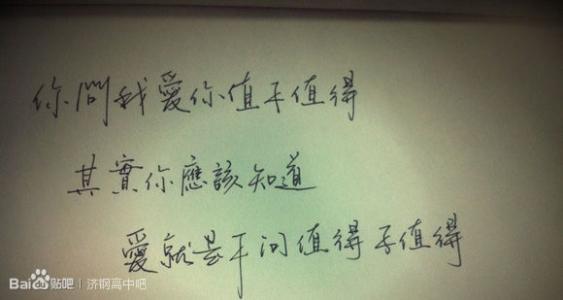 你問我愛你值不值得
其實你應該知道
愛就是不问值得不值得
Bai度贴吧 | 济钢高中吧